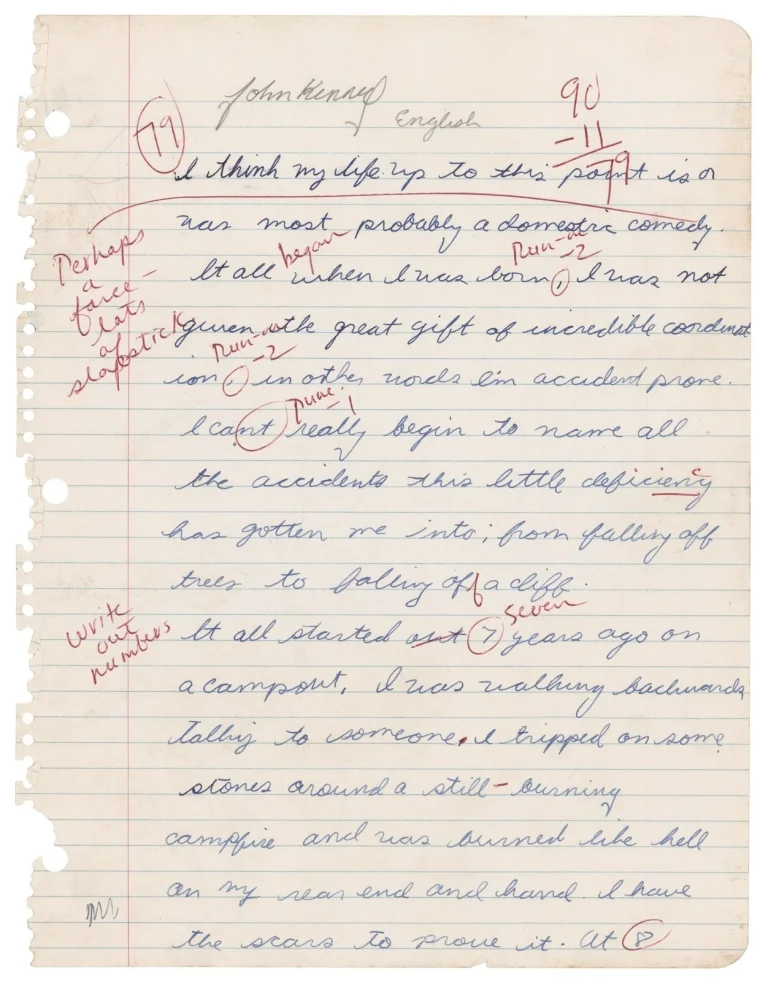 John Kenney
English
79
90
-11
79
I think my life up to this point is or
was most probably a domestic comedy.
Perhaps
a
farce -
lots
of
slapstick
began
Run-on
-2
It all when I was born, I was not
given the great gift of incredible coordinat
Run-on
-2
ion, in other words I'm accident prone.
-1
I cant really begin to name all
the accidents this little deficiency
c
has gotten me into; from falling off
trees to falling off a cliff.
write
out
numbers
seven
It all started out 7 years ago on
a campout, I was walking backwards
talking to someone. I tripped on some
stones around a still-burning
campfire and was burned like hell
on my rear end and hand. I have
the scars to prove it. At 8